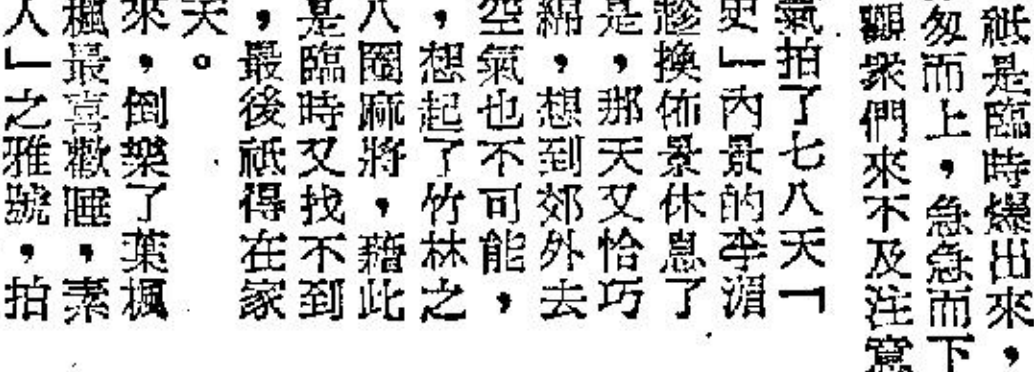 祇是臨時爆出來，
匆而上，急急而下
觀衆們來不及注意
氣拍了七八天「
史」內景的李湄
趁換佈景休息了
是，那天又恰巧
綿，想到郊外去
空氣也不可能，
，想起了竹林之
八圈麻將，藉此
是臨時又找不到
，最後祇得在家
天。
來，倒樂了葉楓
楓最喜歡睡，素
人」之雅號，拍